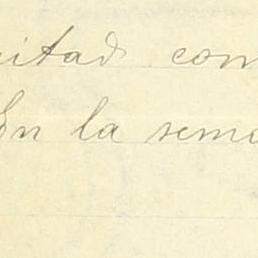 citad con
En la sema